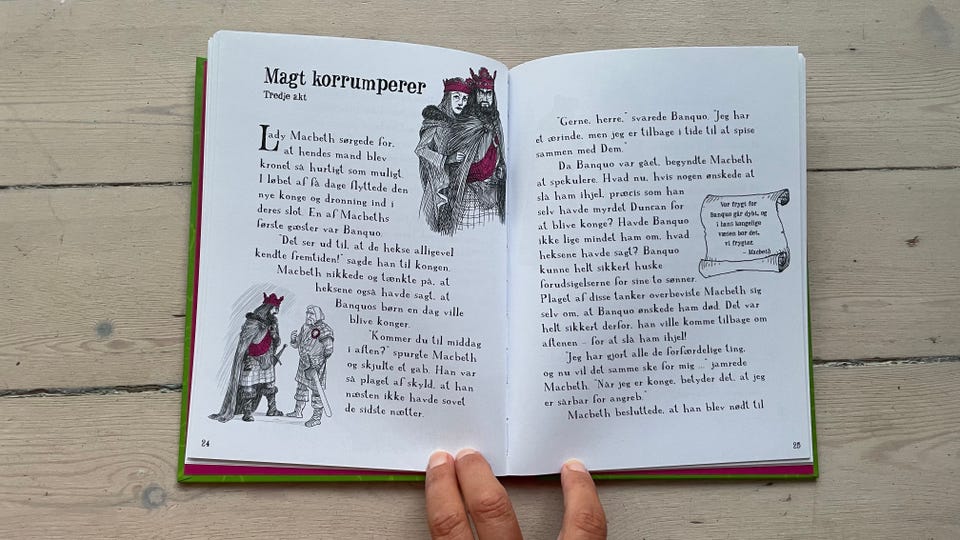 Magt korrumperer
Tredje akt
Lady Macbeth sørgede for,
at hendes mand blev
kronet så hurtigt som muligt.
I løbet af få dage flyttede den
nye konge og dronning ind i
deres slot. En af Macbeths
første gæster var Banquo.
"Det ser ud til, at de hekse alligevel
kendte fremtiden!" sagde han til kongen.
Macbeth nikkede og tænkte på, at
heksene også havde sagt, at
Banquos børn en dag ville
blive konger.
"Kommer du til middag
i aften?" spurgte Macbeth
og skjulte et gab. Han var
så plaget af skyld, at han
næsten ikke havde sovet
de sidste nætter.
24
"Gerne, herre," svarede Banquo. "Jeg har
et ærinde, men jeg er tilbage i tide til at spise
sammen med Dem."
Da Banquo var gået, begyndte Macbeth
at spekulere. Hvad nu, hvis nogen ønskede at
slå ham ihjel, præcis som han
selv havde myrdet Duncan for
at blive konge? Havde Banquo
ikke lige mindet ham om, hvad
heksene havde sagt? Banquo
kunne helt sikkert huske
forudsigelserne for sine to sønner.
Plaget af disse tanker overbeviste Macbeth sig
selv om, at Banquo ønskede ham død. Det var
helt sikkert derfor, han ville komme tilbage om
aftenen – for at slå ham ihjel!
"Jeg har gjort alle de forfærdelige ting,
og nu vil det samme ske for mig ..." jamrede
Macbeth. "Når jeg er konge, betyder det, at jeg
er sårbar for angreb."
Macbeth besluttede, at han blev nødt til
Vor frygt for
Banquo går dybt, og
i hans kongelige
væsen bor det,
vi frygter.
– Macbeth
25